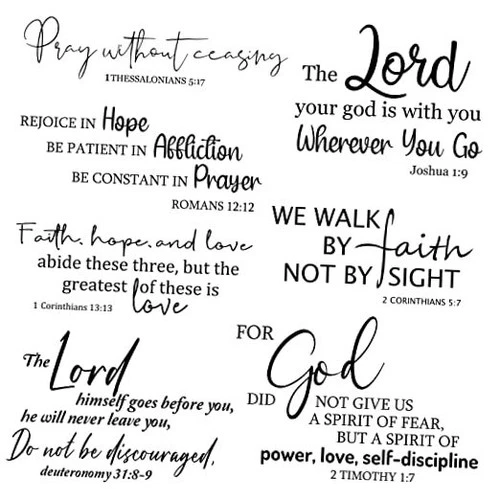 Pray without ceasing
1 THESSALONIANS 5:17
The Lord
your god is with you
Wherever You Go
Joshua 1:9
REJOICE IN Hope
BE PATIENT IN Affliction
BE CONSTANT IN Prayer
ROMANS 12:12
WE WALK
BY faith
NOT BY SIGHT
2 CORINTHIANS 5:7
Faith, hope, and love
abide these three, but the
greatest of these is
love
1 Corinthians 13:13
The Lord
himself goes before you,
he will never leave you,
Do not be discouraged,
deuteronomy 31:8-9
FOR
God
DID NOT GIVE US
A SPIRIT OF FEAR,
BUT A SPIRIT OF
power, love, self-discipline
2 TIMOTHY 1:7